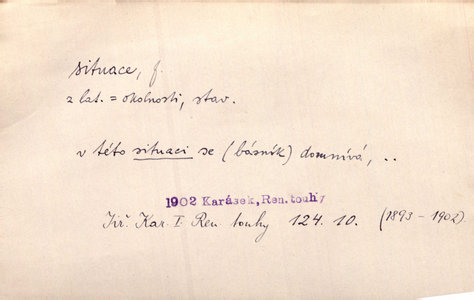 situace, f.
z lat. = okolnosti, stav.
v této situaci se (básník) domnívá, ..
1902 Karásek, Ren. touhy
Jiř. Kar. I Ren. touhy 124. 10. (1893 - 1902).